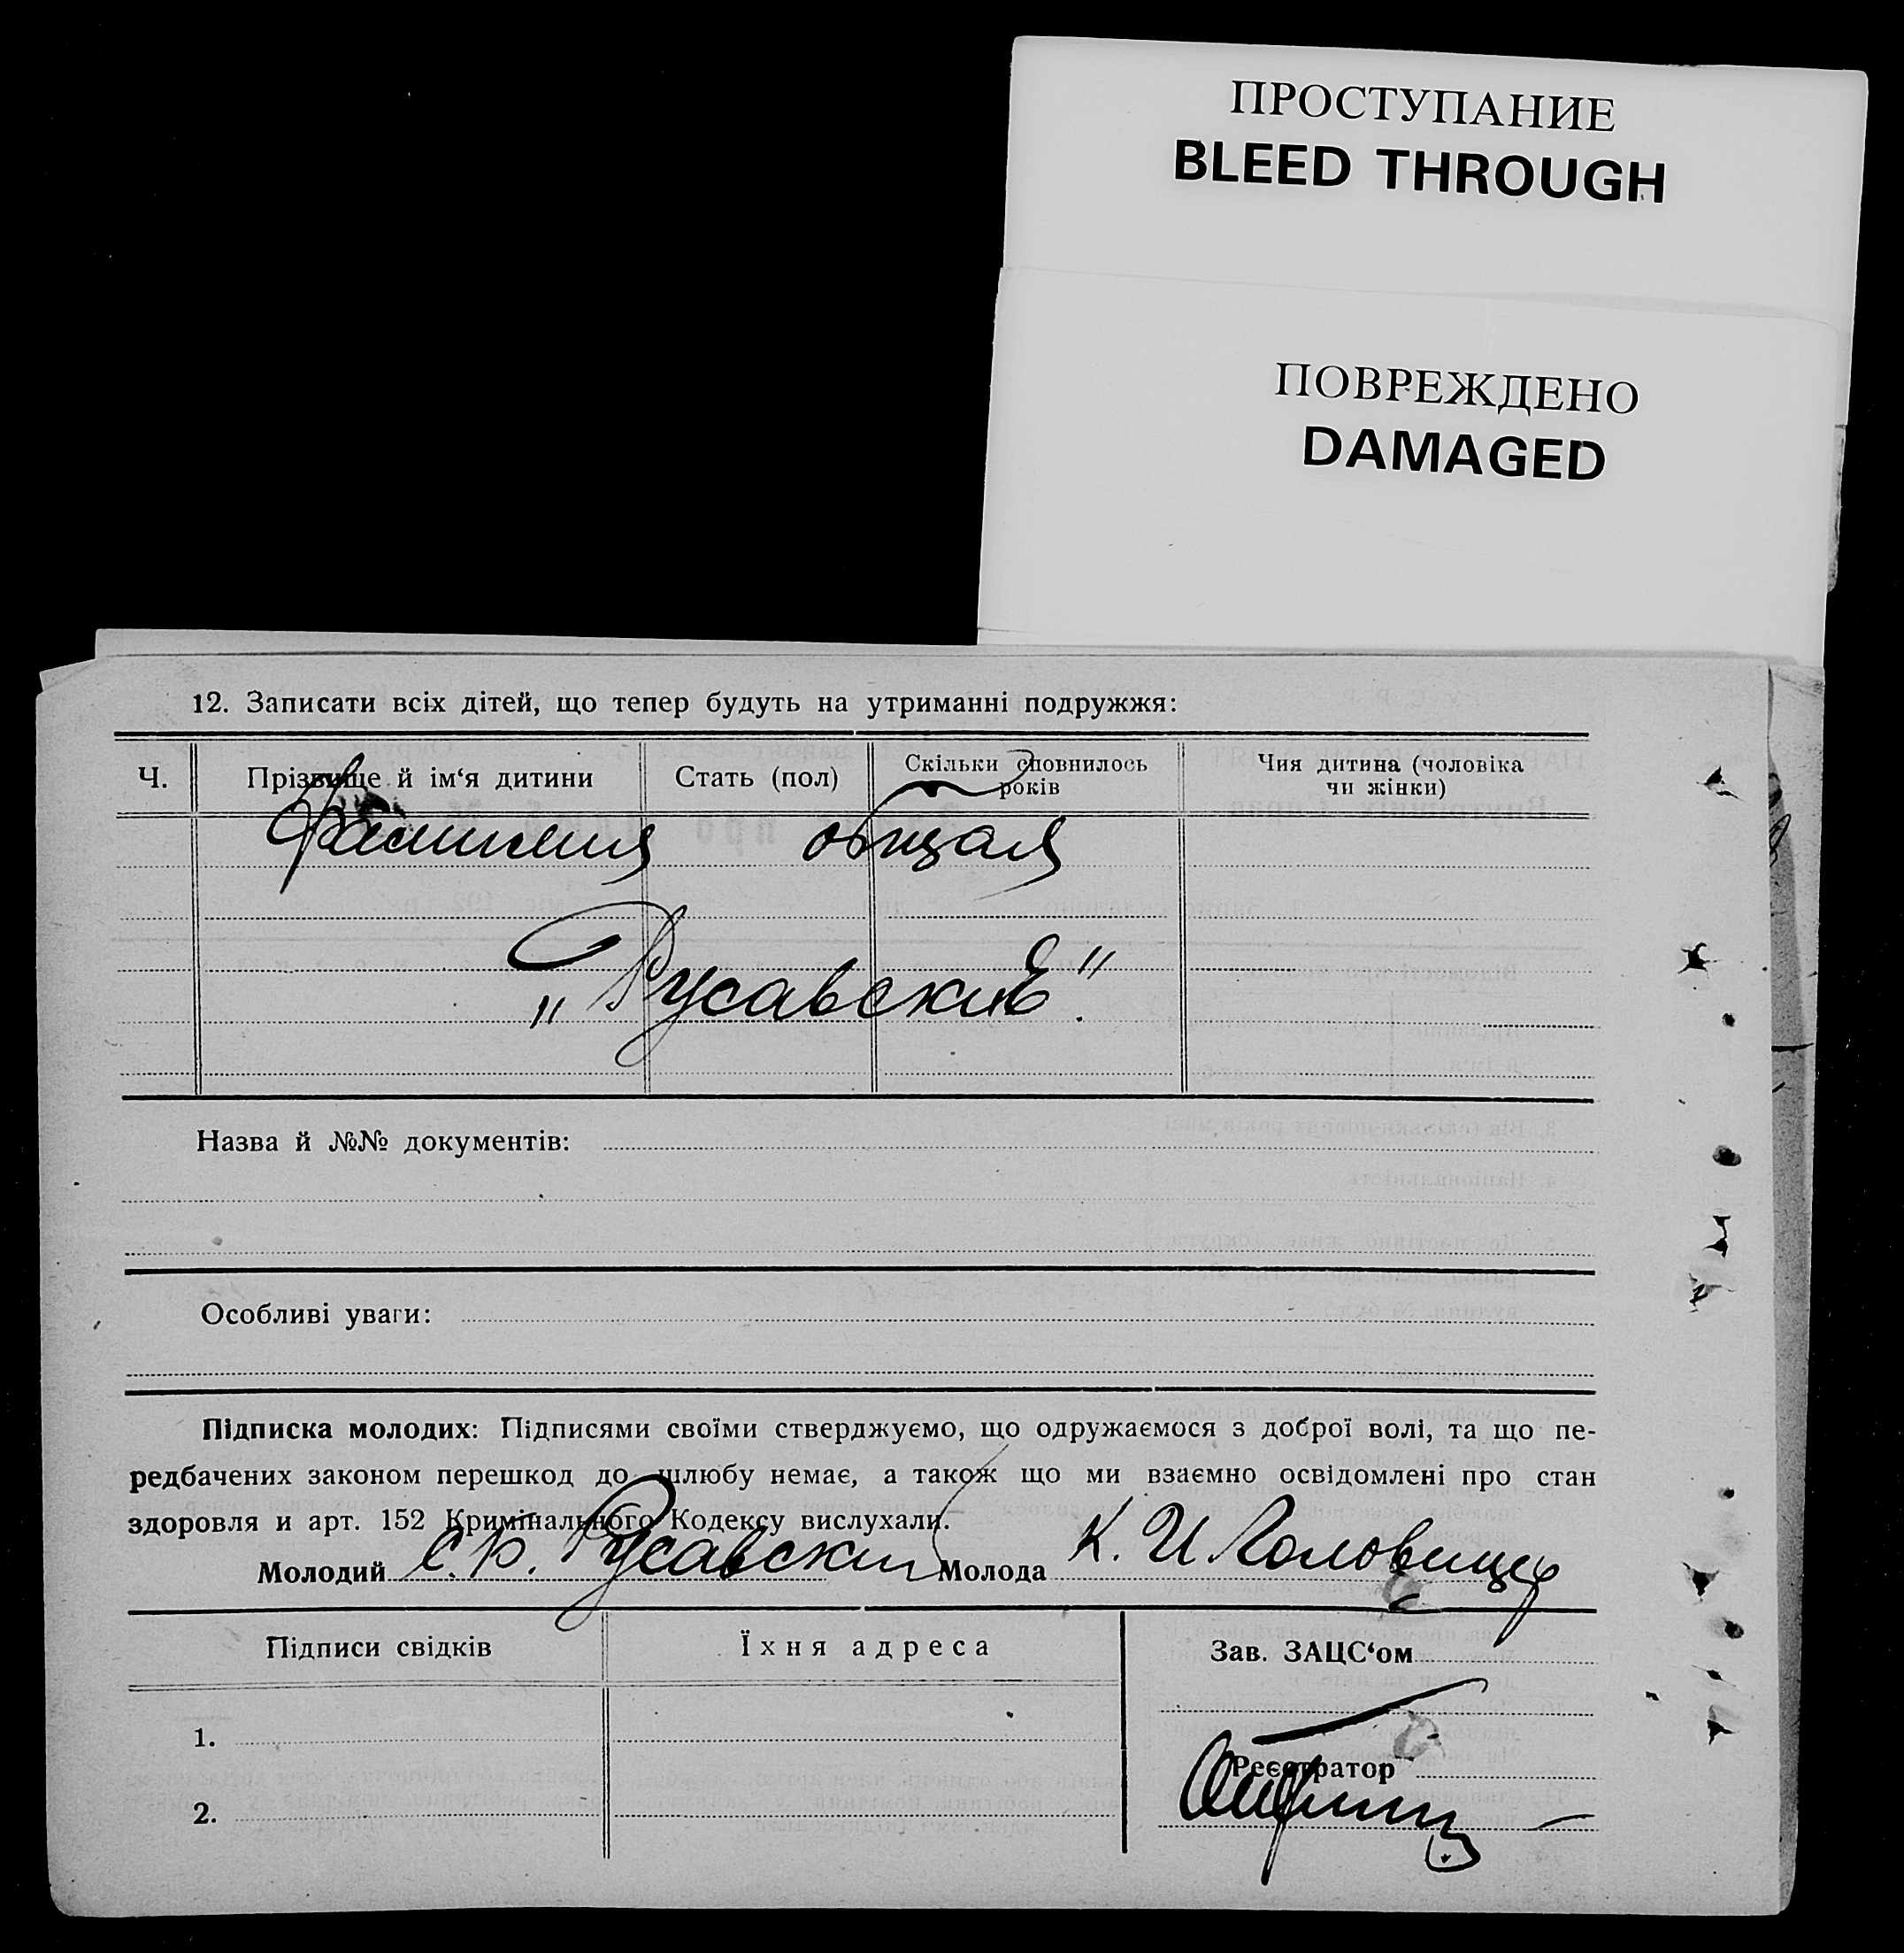 ПРОСТУПАНИЕ
BLEED THROUGH
ПОВРЕЖДЕНО
DAMAGED
12. Записати всіх дітей, що тепер будуть на утриманні подружжя:
Ч. Прізвище й ім‘я дитини Стать (пол) Скільки сповнилось років Чия дитина (чоловіка чи жінки)
Фамилия общая
„Русавские“.
Назва й №№ документів:
Особливі уваги:
Підписка молодих: Підписями своїми стверджуємо, що одружаємося з доброї волі, та що пе-
редбачених законом перешкод до шлюбу немає, а також що ми взаємно освідомлені про стан
здоровля и арт. 152 Кримінального Кодексу вислухали.
Молодий Русавский Молода К. И
Підписи свідків Їхня адреса Зав. ЗАЦС‘ом
1.
Реєстратор
2.